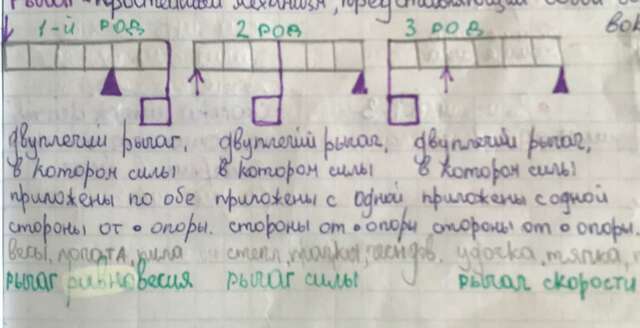 Рычаг - простейший механизм, представляющий собой
1-й РОД 2 РОД 3 РОД
двуплечий рычаг, двуплечий рычаг, двуплечий рычаг,
в котором силы в котором силы в котором силы
приложены по обе приложены с одной приложены с одной
стороны от • опоры. стороны от • опоры стороны от • опоры.
весы, лопата, пила удочка, тяпка,
рычаг равновесия рычаг силы рычаг скорости